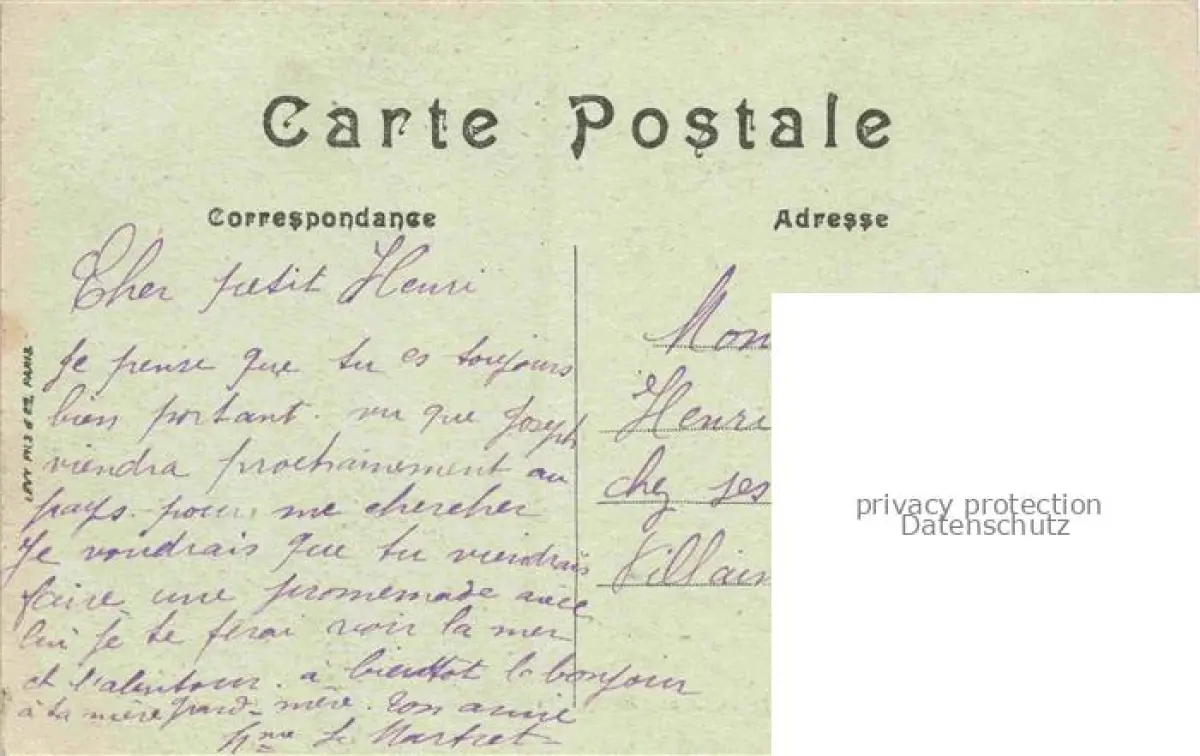 Carte Postale
Correspondance
Cher petit Henri
Je pense que tu es toujours
bien portant. vu que Joseph
viendra prochainement au
pays. pour me chercher
Je voudrais que tu viendrais
faire une promenade avec
lui je te ferai voir la mer
et l'alentour. a bientot le bonjour
à ta mère grand-mère. Ton amie
Mme Le Martret
LEVY FILS & CIE, PARIS
Adresse
Mon
Henri
chez ses
Villain
privacy protection
Datenschutz